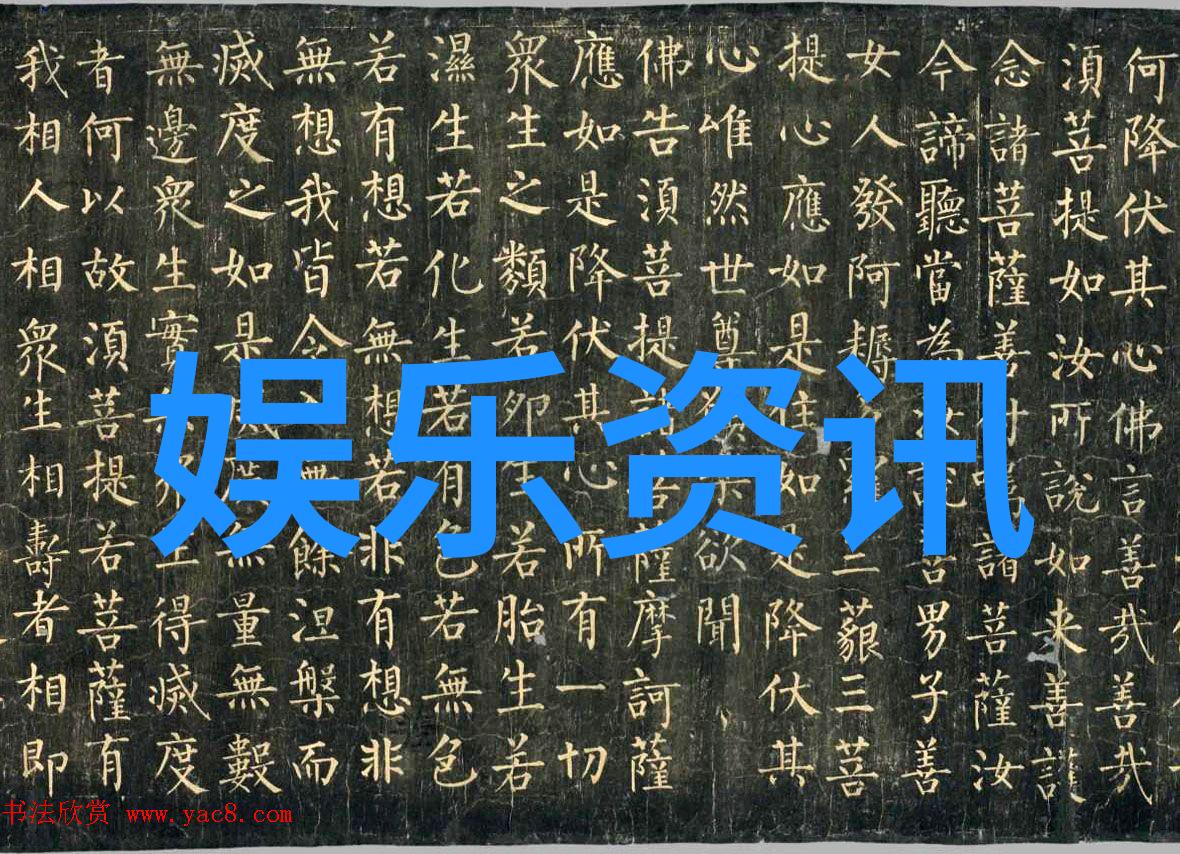 何降伏其心佛言善哉善哉
須菩提如汝所說如来善護
念諸菩薩善付嘱諸菩薩汝
今諦聽當為汝說善男子善
女人發阿耨羅三藐三菩
提心應如是住如是降伏其
心唯然世尊樂欲聞
佛告須菩提諸菩薩摩訶薩
應如是降伏其心所有一切
衆生之類若卵生若胎生若
濕生若化生若有色若無色
若有想若無想若非有想非
無想我皆令入無餘涅槃而
滅度之如是滅度無量無數
無邊衆生實無衆生得滅度
者何以故須菩提若菩薩有
我相人相衆生相壽者相即
娱乐资讯
书法欣赏 www.yac8.com